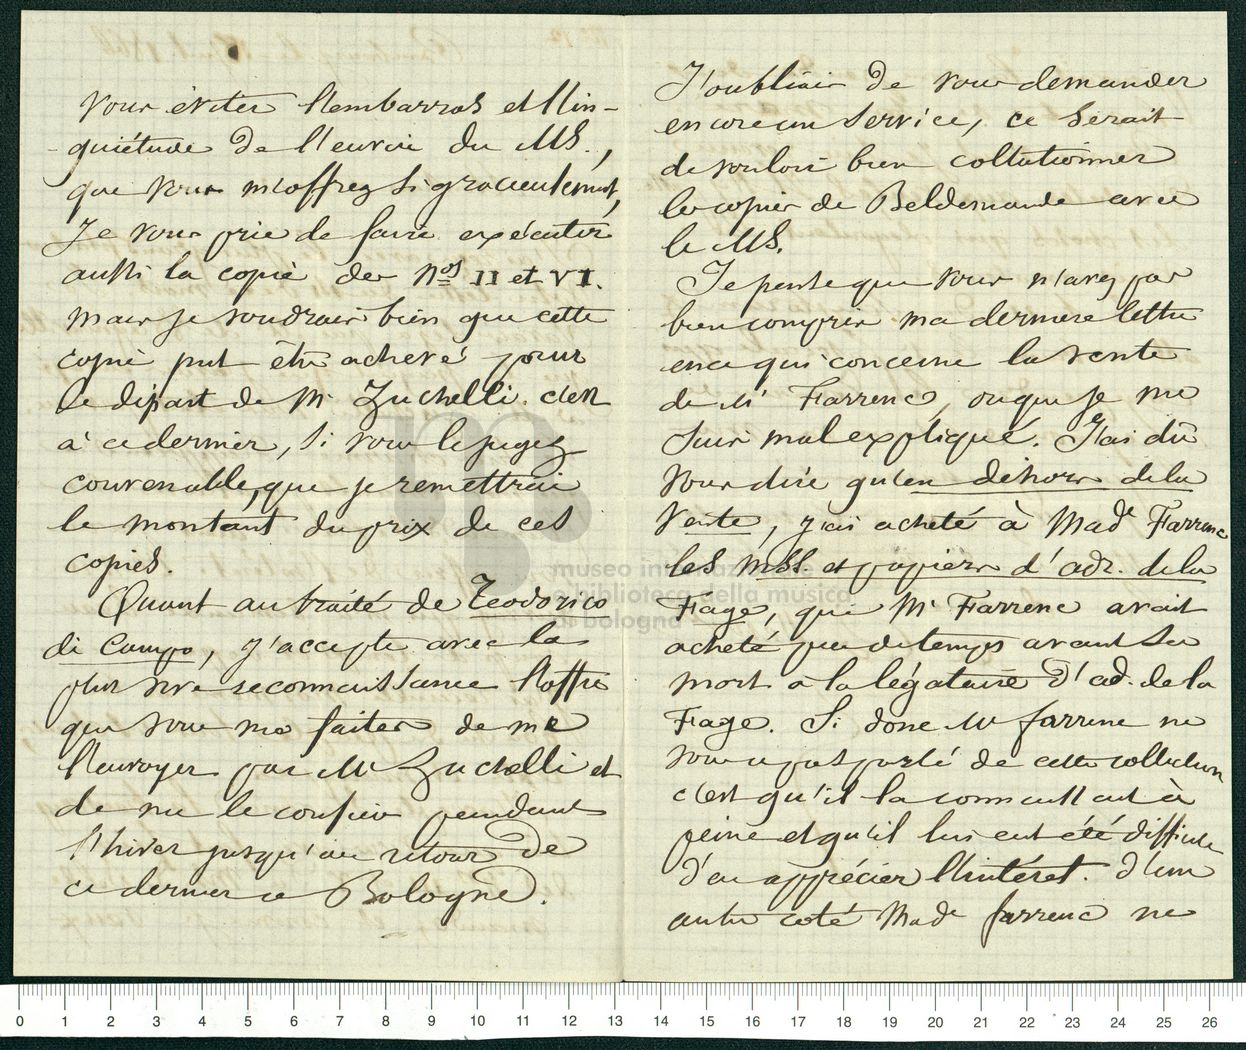 vous éviter l'embarras et l'in-
-quiétude de l'envoi du MS.,
que vous m'offrez si gracieusement,
Je vous prie de faire exécuter
aussi la copie des Nos II et VI.
mais je voudrais bien que cette
copie put être achevé pour
le départ de Mr Zuchelli. c'est
à ce dernier, si vous le jugez
convenable, que je remettrai
le montant du prix de ces
copies.
Quant au traité de Teodorico
di Campo, j'accepte avec la
plus vive reconnaissance l'offre
que vous me faites de me
l'envoyer par Mr Zuchelli et
de me le confier pendant
l'hiver jusqu'au retour de
ce dernier a Bologne.
J'oubliais de vous demander
encore un service, ce serait
de vouloir bien collationner
les copies de Beldemande avec
le MS.
Je pense que vous n'avez pas
bien compris ma derniere lettre
en ce qui concerne la vente
de Mr Farrenc, ou que je me
suis mal expliqué. J'ai dû
vous dire qu'en dehors de la
vente, j'ai acheté à Made Farrenc
les MSS et papiers d'adr. de la
Fage, que Mr Farrenc avait
acheté peu de temps avant sa
mort a la légataire d'ad. de la
Fage. Si donc Mr farrenc ne
vous a pas parlé de cette collection
c'est qu'il la connaissait à
peine et qu'il lui eut été difficile
d'en apprécier l'intéret. D'un
autre coté Made farrenc ne
museo internazionale
e biblioteca della musica
di bologna
0 1 2 3 4 5 6 7 8 9 10 11 12 13 14 15 16 17 18 19 20 21 22 23 24 25 26